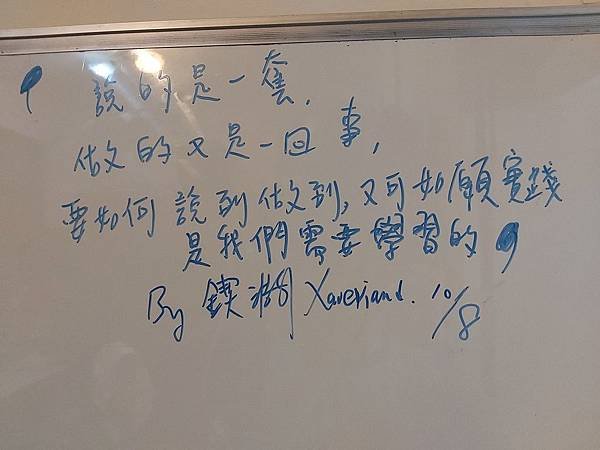 說的是一套,
做的又是一回事,
要如何說到做到,又可如願實踐
是我們需要學習的
By Xaveriand. 10/8